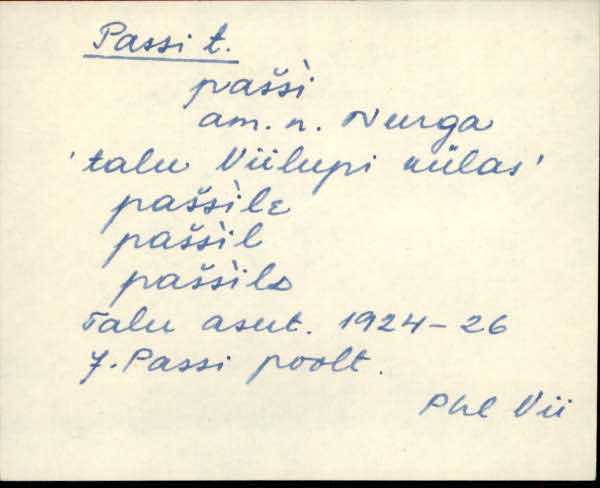 Passi t.
pašši̇̀
am. n. Nurga
'talu Viilupi külas'
pašši̇̀lɛ
pašši̇̀l
pašši̇̀ls
Talu asut. 1924-26
J. Passi poolt.
Phl Vii